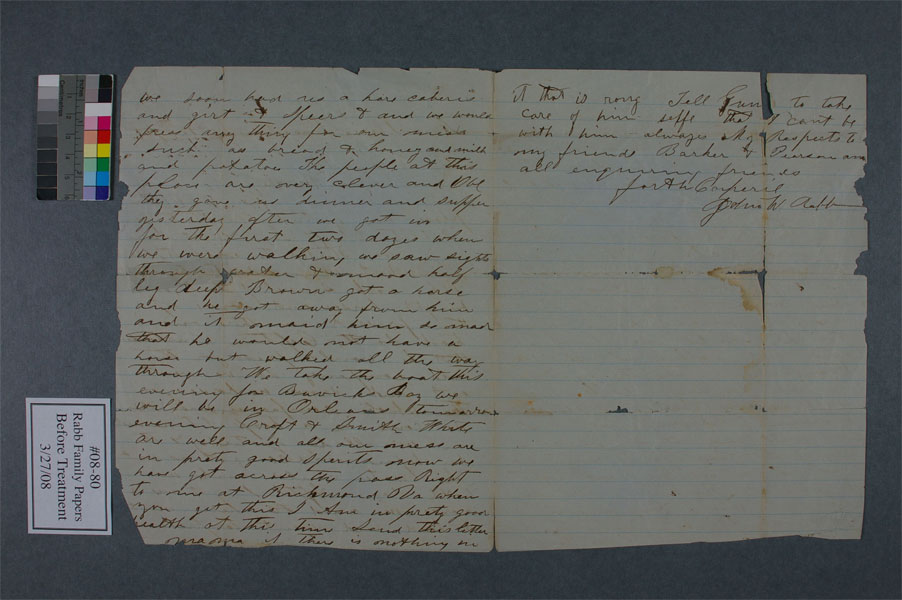 we soon had us a hors
and girt & Spears & and we would
press any thing for our mess
such as bread & honey and milk
and potatoes The people at this
place are over clever and
they gave us dinner and supper
yesterday after we got in
for the first two dayes when
we were walking we saw sights
through water & mud half
leg deep Brown got a horse
and he got away from him
and it maid him so mad
that he would not have a
horse but walked all the way
through We take the boat this
evening for Bay we
will be in Orleans tomorrow
evening Croft & Smith White
are well and all our mess are
in prety good Spirits now we
have got across the pass Right
to me at Richmond Va when
you get this I Am in prety good
health at this time Send this letter
mama if there is nothing in
it that is rong Tell to take
care of him selfe that I cant be
with him always My Respects to
my friends Barker & Pearson and
all enquiring friends
John W Rabb
#08-80
Rabb Family Papers
Before Treatment
3/27/08